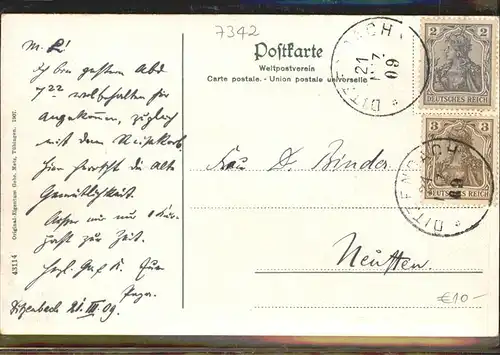 7342
Postkarte
Weltpostverein
Carte postale. - Union postale universelle
DITZENBACH
21
7
09
2 2
DEUTSCHES REICH
3 3
DEUTSCHES REICH
DITZENBACH
M. L!
Ich bin gestern Abd
7 22 wolbehalten hir
angekommen, zugleich
mit dem
Hier herrscht die alte
Gemütlichkeit.
Außer mir nur 1 Kur-
gast zur Zeit.
Herzl. Gruß
Ditzenbach 21. III. 09.
Frau D. Binder
Neuffen.
€10-
43114 Original-Eigentum Gebr. Metz, Tübingen. 1907.